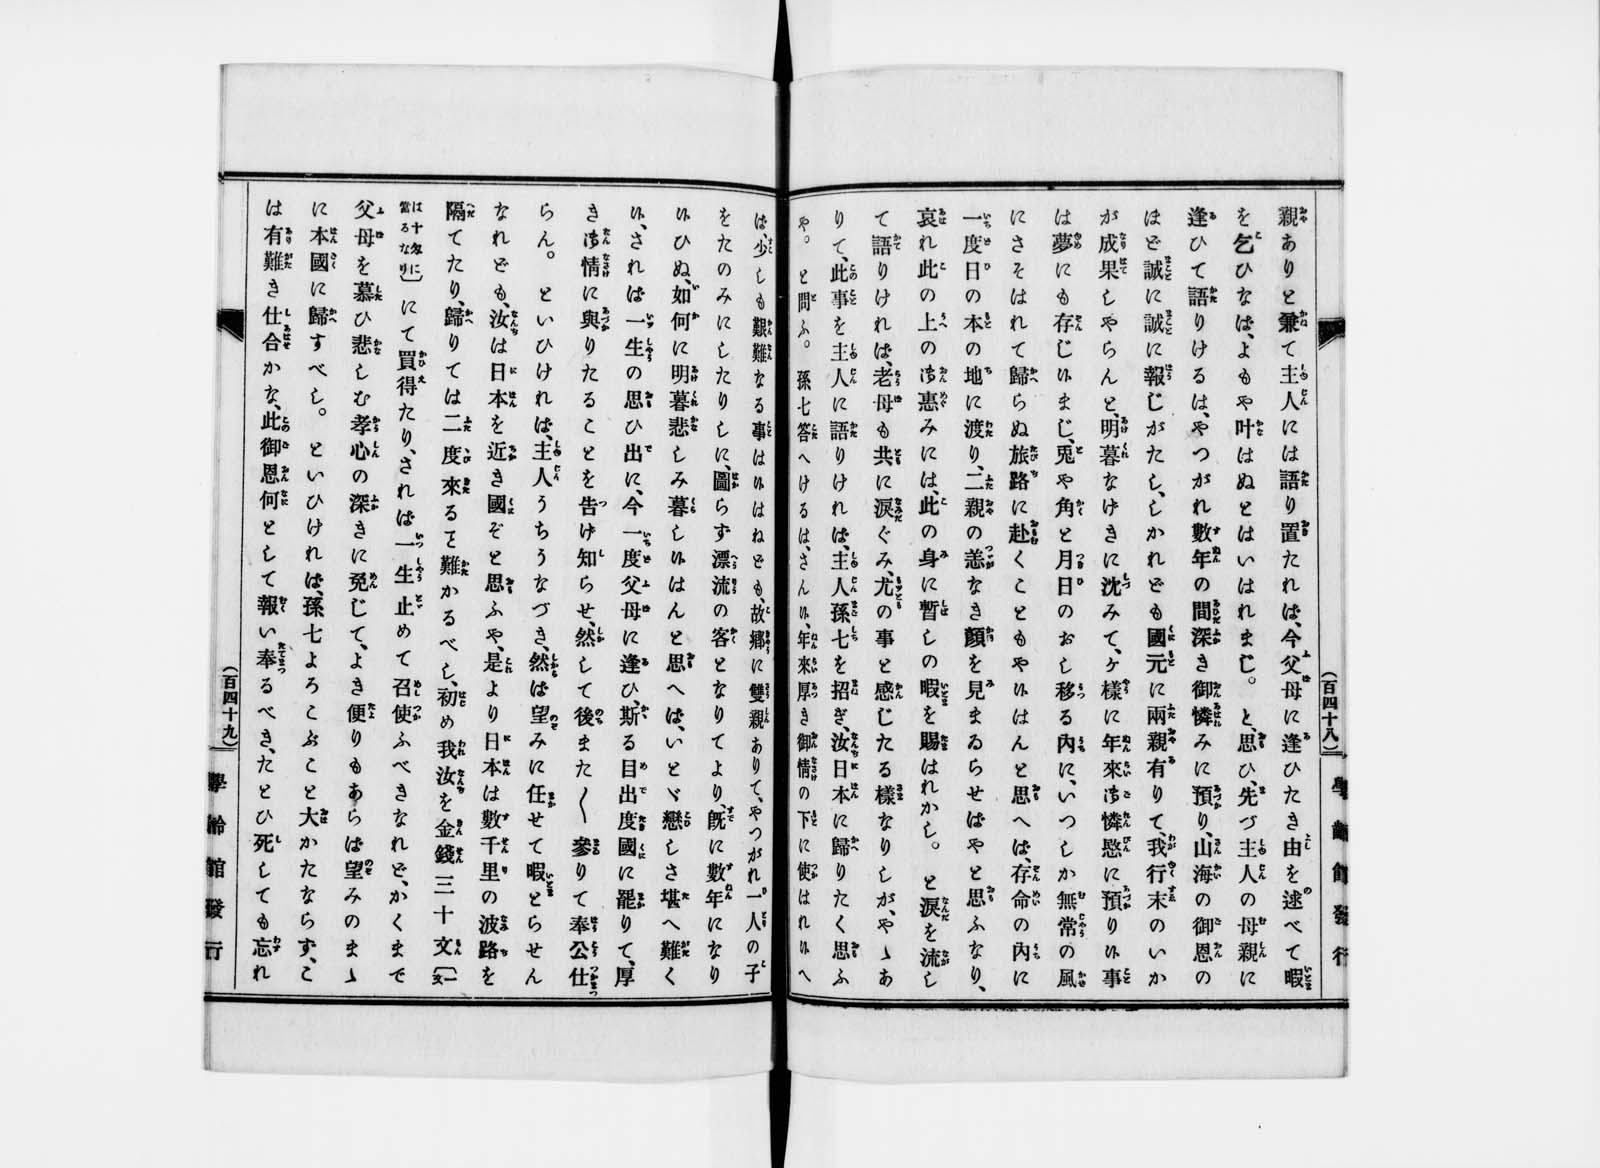 親ありと兼て主人には語り置たれは、今父母に逢ひたき由を述べて暇
を乞ひなは、よもや叶はぬとはいはれまじ。と、思ひ、先づ主人の母親に
逢ひて語りけるは、やつがれ數年の間深き御憐みに預り、山海の御恩の
ほど誠に誠に報じがたし、しかれども國元に兩親有りて、我行末のいか
が成果しやらんと、明暮なけきに沈みて、ケ樣に年來御憐愍に預り候事
は夢にも存じ候まじ、兎や角と月日のおし移る內に、いつしか無常の風
にさそはれて歸らぬ旅路に赴くこともや候はんと思へは、存命の內に
一度日の本の地に渡り、二親の恙なき顏を見まゐらせばやと思ふなり、
哀れ此の上の御惠みには、此の身に暫しの暇を賜はれかし。と淚を流し
て語りけれは、老母も共に淚ぐみ、尤の事と感じたる樣なりしが、やゝあ
りて、此事を主人に語りけれは、主人孫七を招ぎ、汝日本に歸りたく思ふ
や。と問ふ。孫七答へけるは、さん候、年來厚き御情の下に使はれ候へ
（百四十八）
學齡館發行
は、少しも艱難なる事は候はねども、故鄉に雙親ありて、やつがれ一人の子
をたのみにしたりしに、圖らず漂流の客となりてより、旣に數年になり
候ひぬ、如何に明暮悲しみ暮し候はんと思へは、いとゞ戀しさ堪へ難く
候、されば一生の思ひ出に、今一度父母に逢ひ、斯る目出度國に罷りて、厚
き御情に與りたることを告け知らせ、然して後また〱參りて奉公仕
らん。といひけれは、主人うちうなづき、然ば望みに任せて暇とらせん
なれども、汝は日本を近き國ぞと思ふや、是より日本は數千里の波路を
隔てたり、歸りては二度來るヿ難かるべし、初め我汝を金錢三十文〔一文
は十匁に當るなり〕にて買得たり、されは一生止めて召使ふべきなれど、かくまで
父母を慕ひ悲しむ孝心の深きに免じて、よき便りもあらは望みのまゝ
に本國に歸すべし。といひけれは、孫七よろこぶこと大かたならす、こ
は有難き仕合かな、此御恩何として報い奉るべき、たとひ死しても忘れ
（百四十九）
學齡館發行